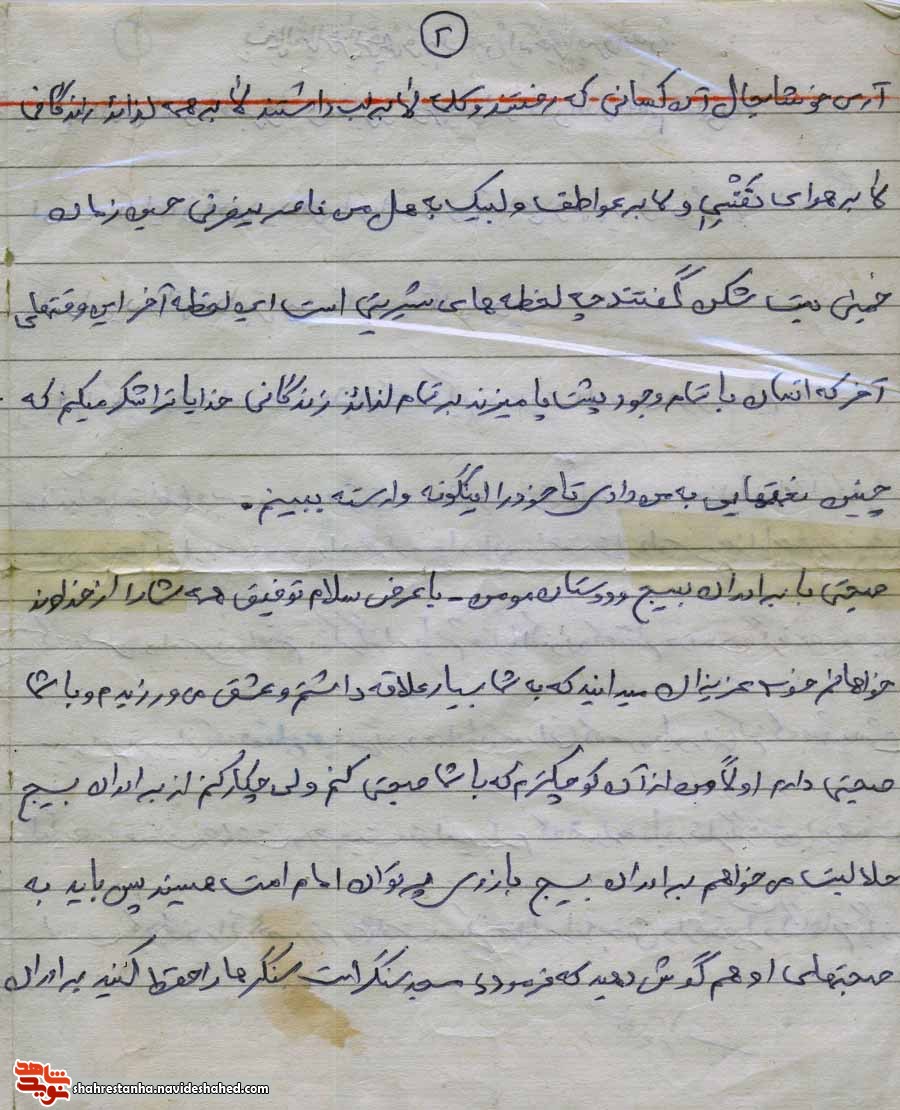 ۲
آری خوشابحال آن کسانی که رفتند و کلمه لا بر لب داشتند لا بر همه لذائذ زندگانی
لا بر هوای نفس و لا بر عواطف و لبیک به هل من ناصر ینصرنی حسین زمان
خمینی بت شکن گفتند چه لحظه های شیرینی است این لحظه آخر این وقتهای
آخر که انسان با تمام وجود پشت پا میزند بر تمام لذائذ زندگانی خدایا ترا شکر میکنم که
چنین نعمتهایی به من دادی تا خود را اینگونه وارسته ببینم.
صحبتی با برادران بسیج و دوستان مومن - با عرض سلام توفیق همه شما را از خداوند
خواهانم خوب عزیزان میدانید که به شما بسیار علاقه داشتم و عشق می ورزیدم و با شما
صحبتی دارم اولاً من از آن کوچکترم که با شما صحبتی کنم ولی چکار کنم از برادران بسیج
حلالیت می خواهم برادران بسیج بازوی پر توان امام امت هستید پس باید به
صحبتهای او هم گوش دهید که فرمودی مسجد سنگر است سنگرها را حفظ کنید برادران
نوید شاهد
shahrestanha.navideshahed.com